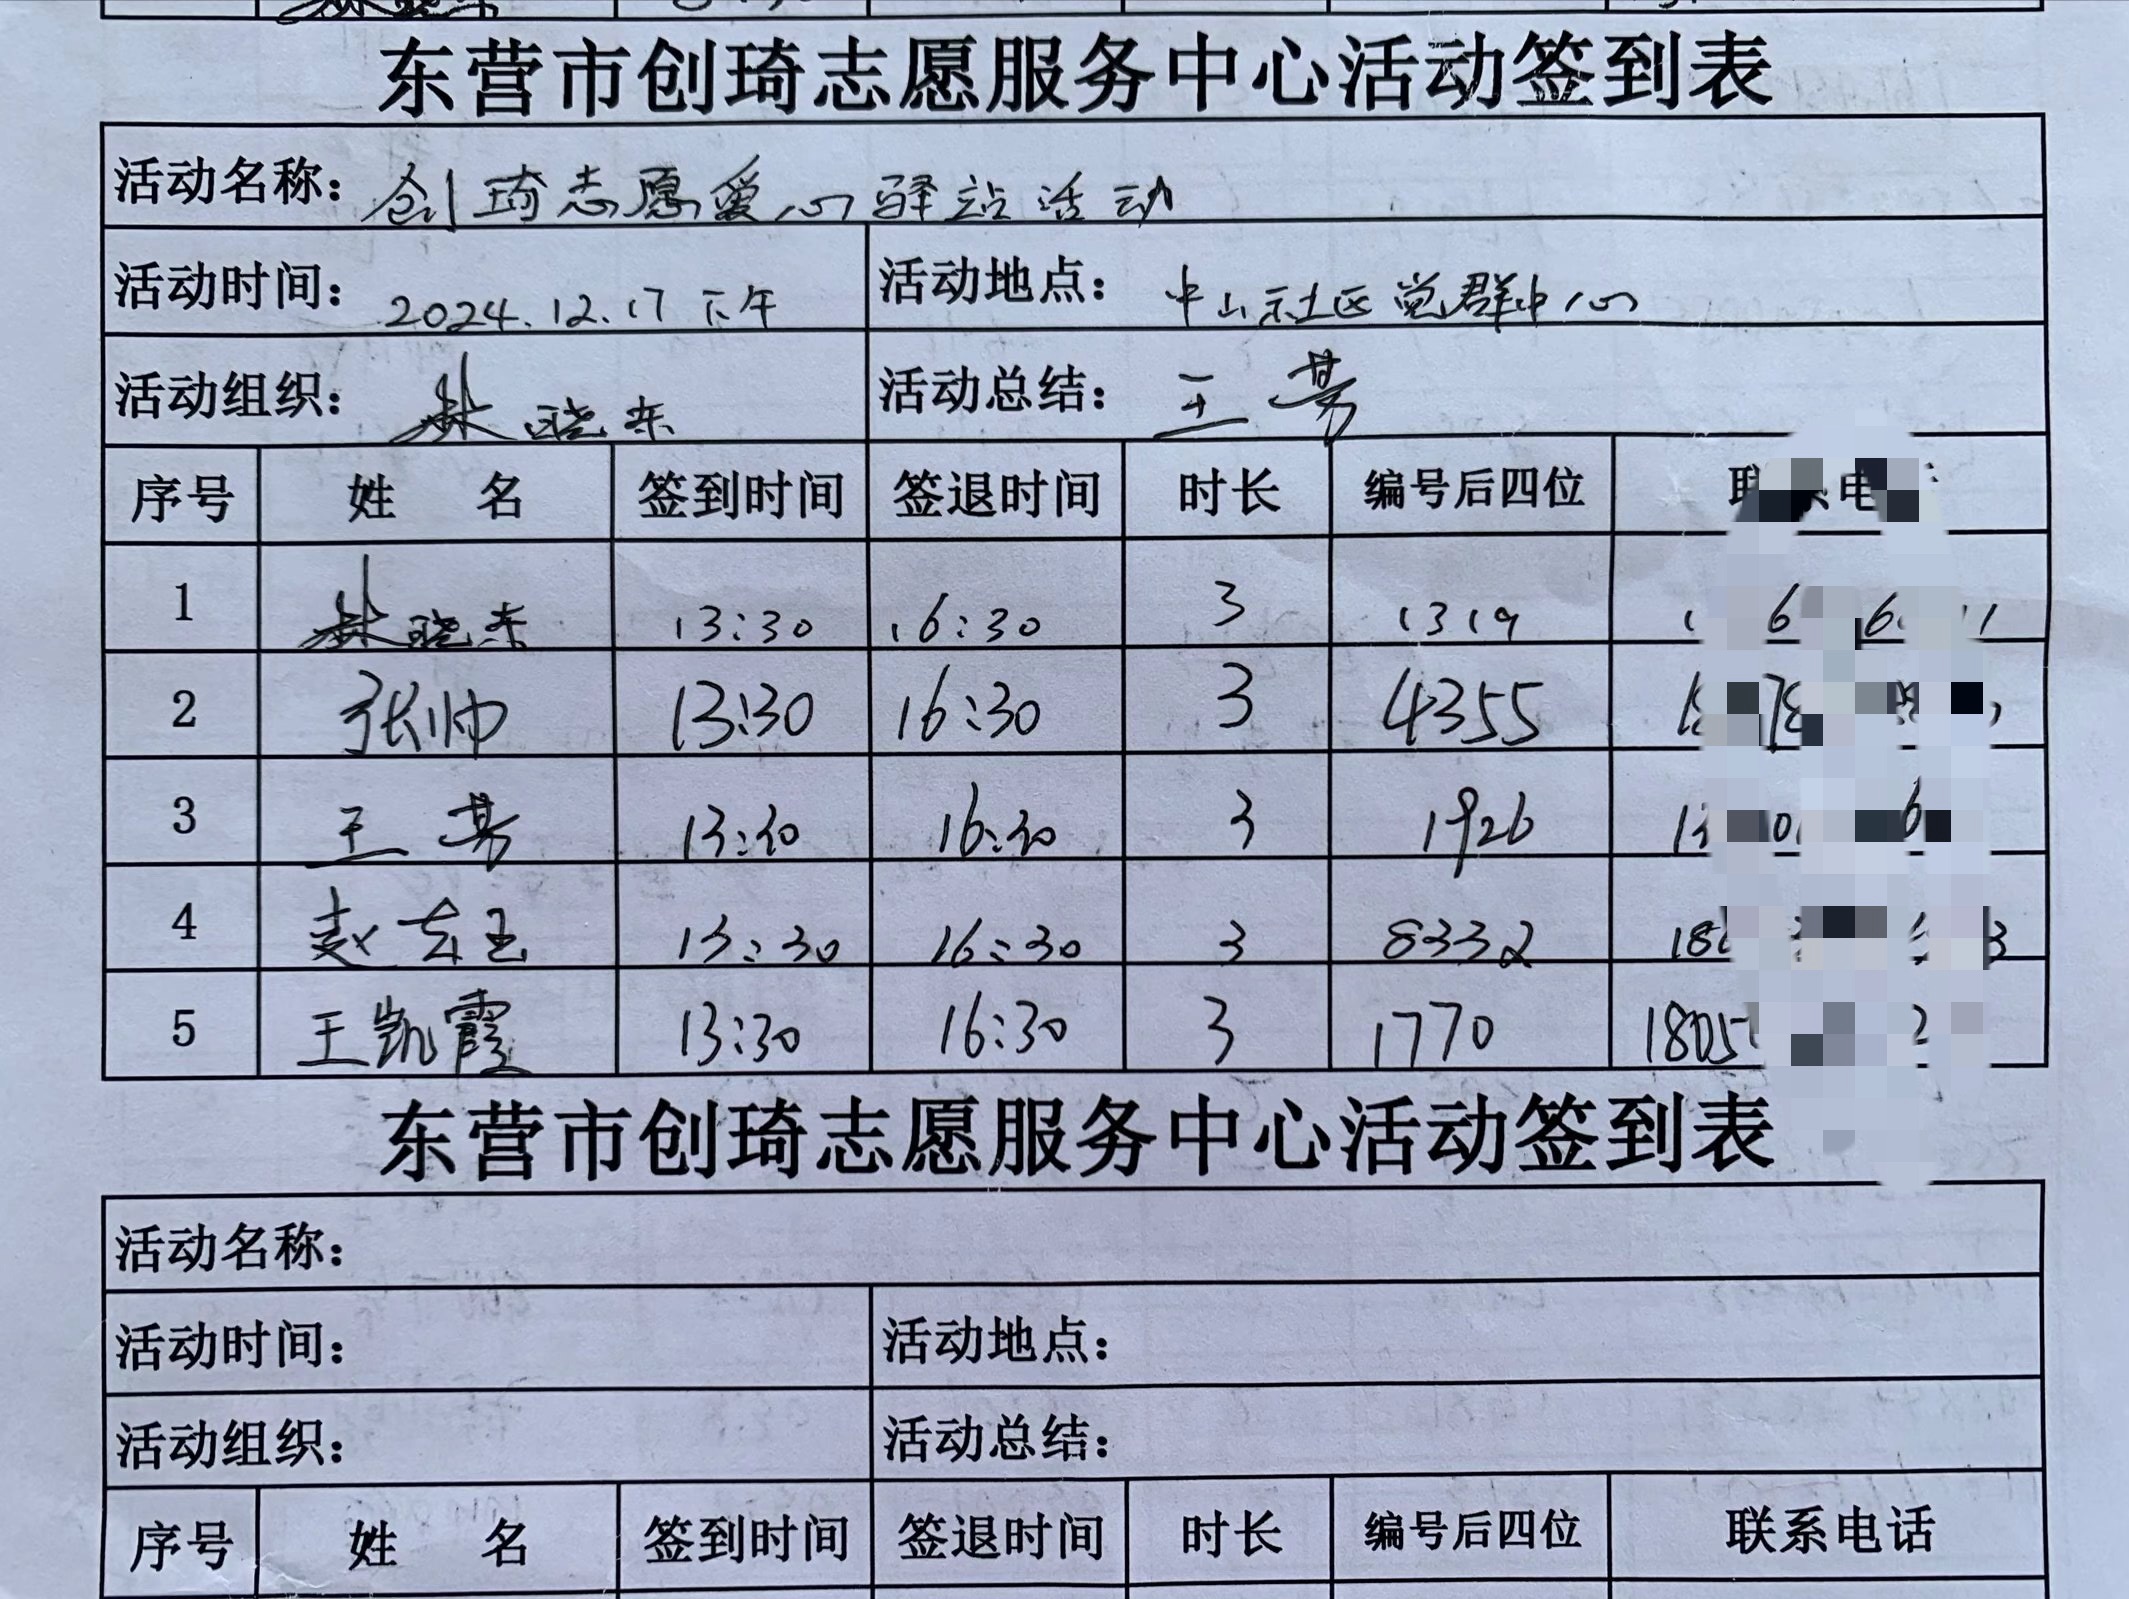 东营市创琦志愿服务中心活动签到表
活动名称：创琦志愿爱心驿站活动
活动时间：2024.12.17下午 活动地点：中山社区党群中心
活动组织：林晓东 活动总结：王芳
序号 姓名 签到时间 签退时间 时长 编号后四位 联系电
1 林晓东 13:30 16:30 3 1319
2 张帅 13:30 16:30 3 4355
3 王芳 13:30 16:30 3 1926
4 赵 13:30 16:30 3 8332
5 王凯霞 13:30 16:30 3 1770
东营市创琦志愿服务中心活动签到表
活动名称：
活动时间： 活动地点：
活动组织： 活动总结：
序号 姓名 签到时间 签退时间 时长 编号后四位 联系电话